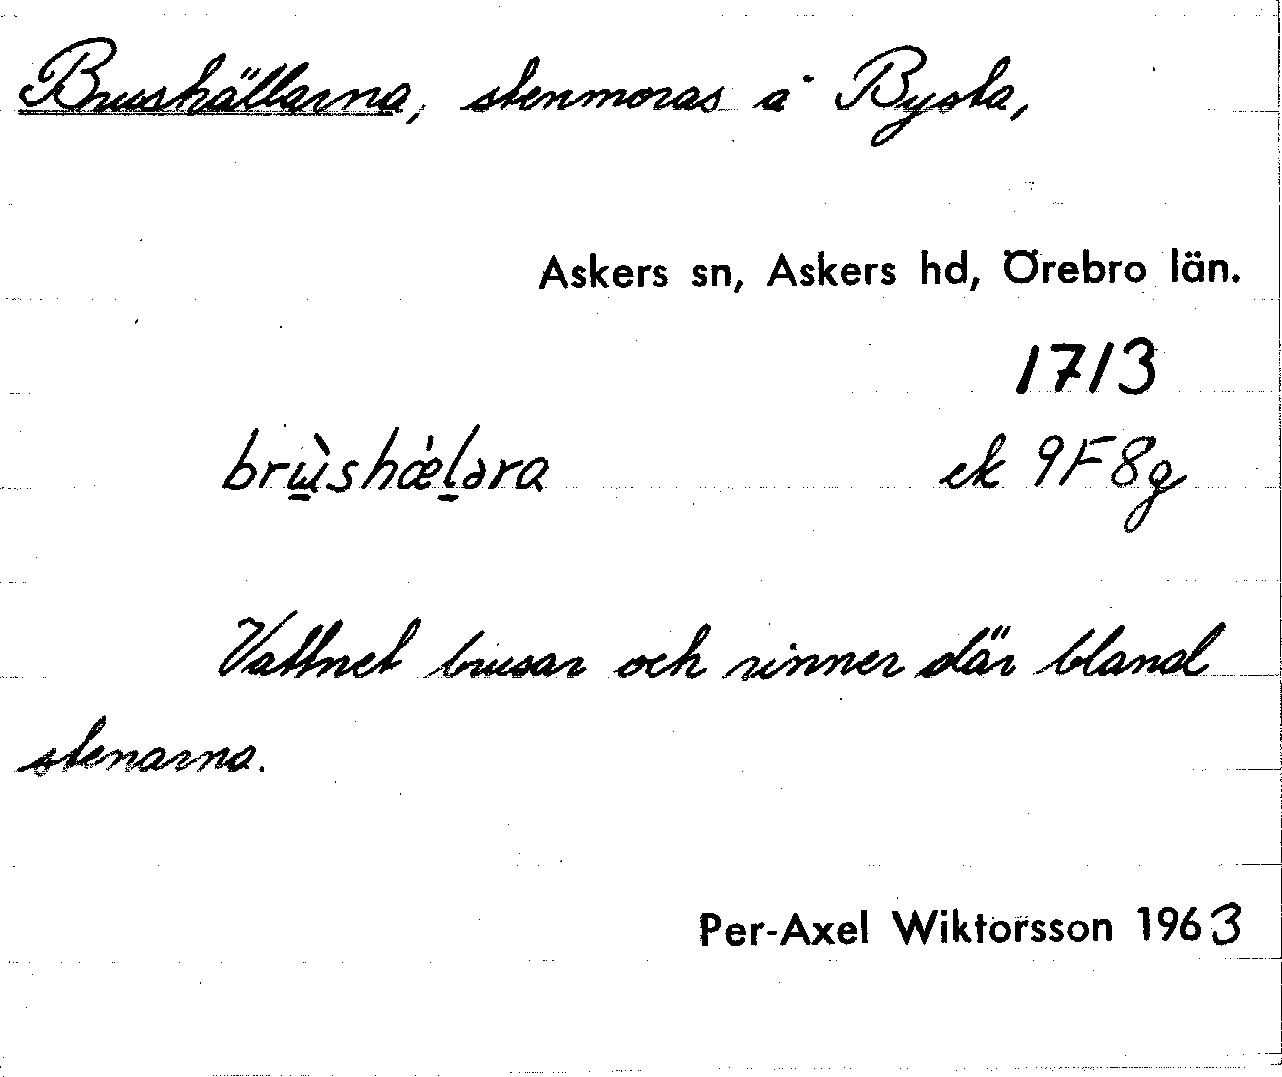 Brushällarna, stenmoras å Bysta,
Askers sn, Askers hd, Örebro län.
1713
brụ̀shǽləra ek 9F8g
Vattnet brusar och rinner där bland
stenarna.
Per-Axel Wiktorsson 1963